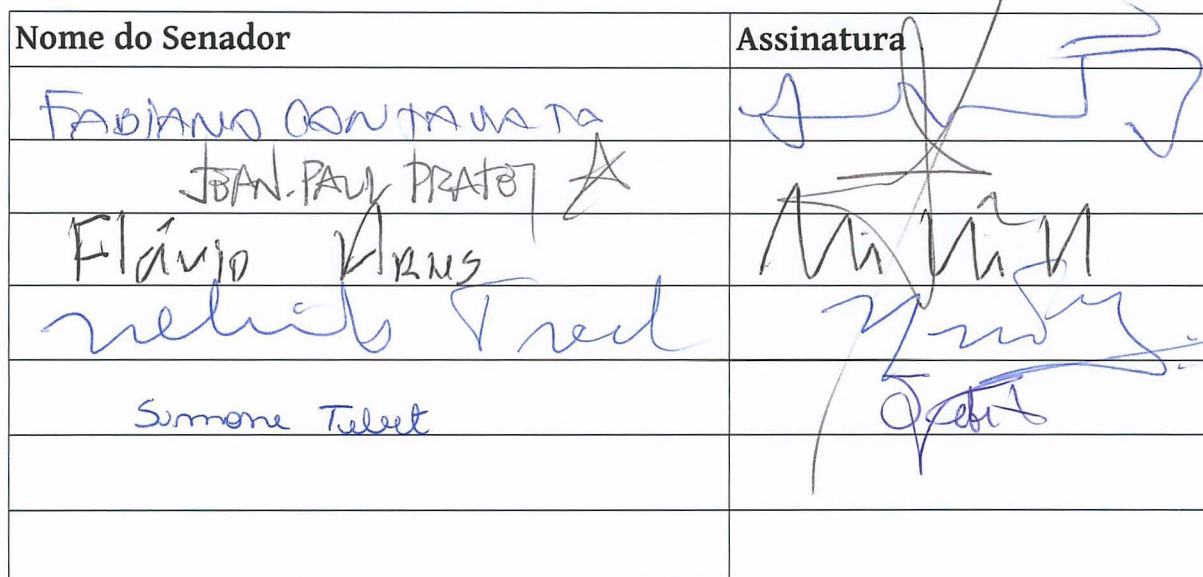 Nome do Senador Assinatura
FABIANO CONTARATO
JEAN-PAUL PRATES
Flávio ARNS
Nelsinho Trad
Simone Tebet